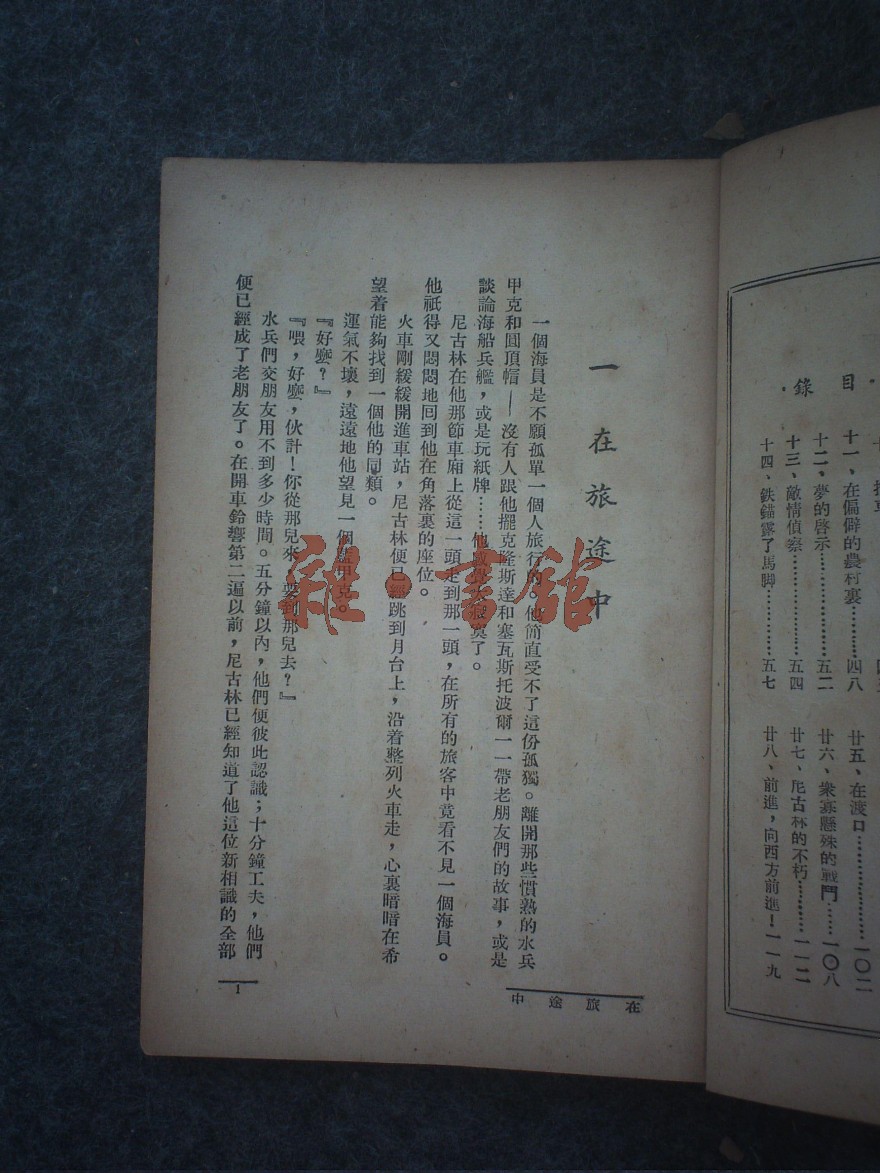 目錄
十一、在偏僻的農村裏………四八
十二、夢的啓示………………五二
十三、敵情偵察………………五四
十四、鉄錨露了馬脚…………五七
廿五、在渡口…………………一〇二
廿六、衆寡懸殊的戰鬥……一〇八
廿七、尼古林的不朽………一一二
廿八、前進，向西方前進！一一九
一 在旅途中
一個海員是不願孤單一個人旅行的，他简直受不了這份孤獨。離開那些慣熟的水兵
甲克和圓頂帽——沒有人跟他擺克隆斯達和塞瓦斯托波爾一一帶老朋友們的故事，或是
談論海船兵艦，或是玩紙牌……他感覺太寂寞了。
尼古林在他那節車廂上從這一頭走到那一頭，在所有的旅客中竟看不見一個海員。
他祇得又悶悶地囘到他在角落裏的座位。
火車剛緩緩開進車站，尼古林便已經跳到月台上，沿着整列火車走，心裏暗暗在希
望着能夠找到一個他的同類。
運氣不壞，遠遠地他望見一個藍甲克。
『好麼？』
『喂，好麼，伙計！你從那兒來，要到那兒去？』
水兵們交朋友用不到多少時間。五分鐘以內，他們便彼此認識；十分鐘工夫，他們
便已經成了老朋友了。在開車鈴響第二遍以前，尼古林已經知道了他這位新相識的全部
在旅途中
1
雜·書館